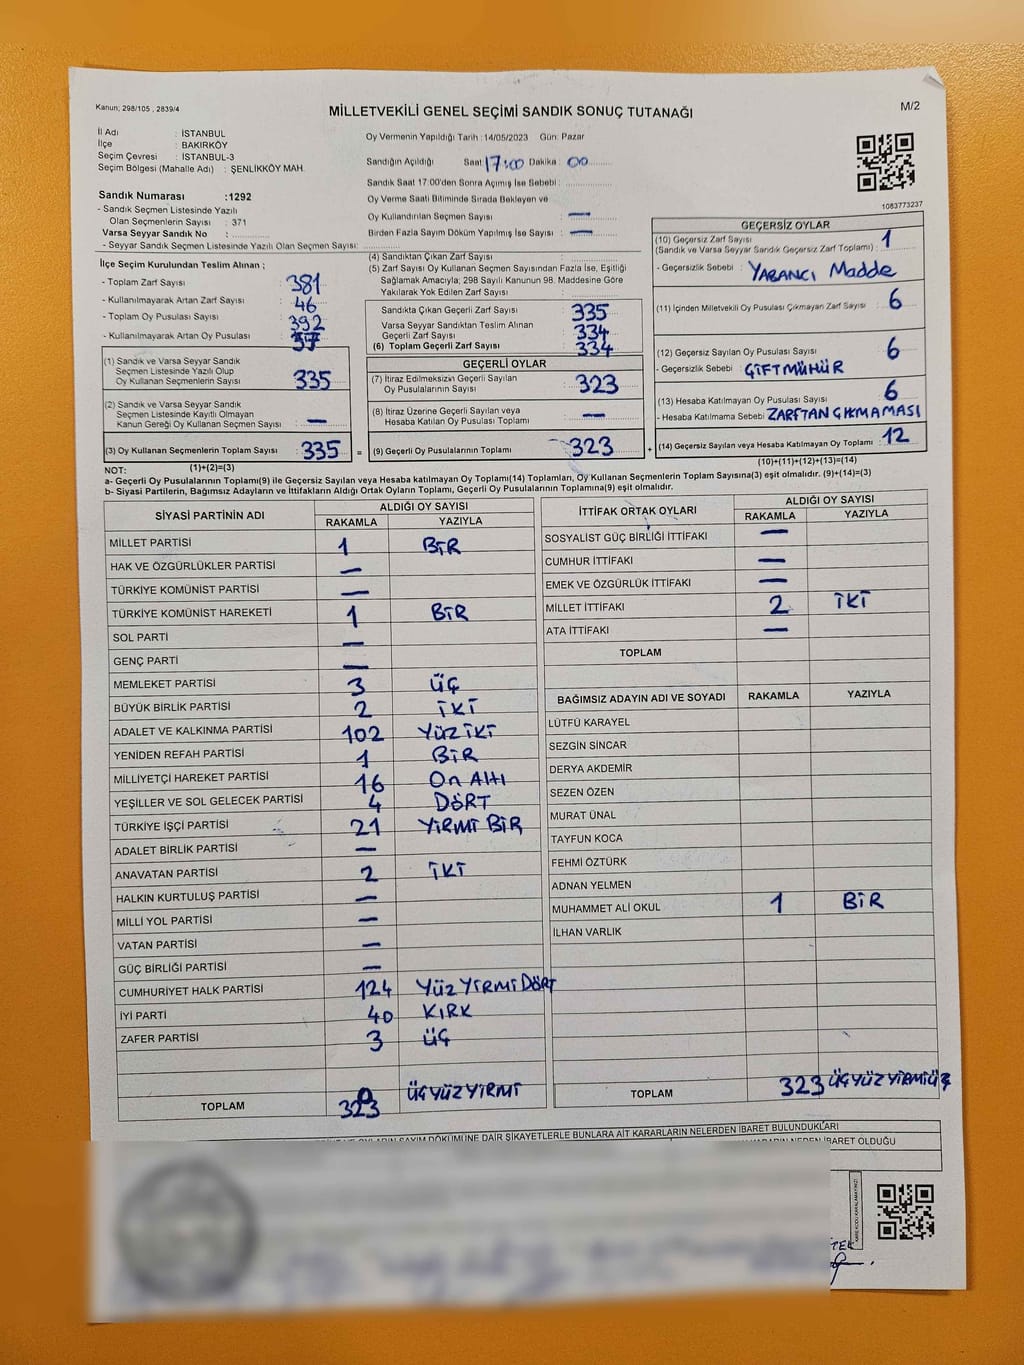 Kanun; 298/105 , 2839/4
MİLLETVEKİLİ GENEL SEÇİMİ SANDIK SONUÇ TUTANAĞI
M/2
İl Adı : İSTANBUL
İlçe : BAKIRKÖY
Seçim Çevresi : İSTANBUL-3
Seçim Bölgesi (Mahalle Adı) : ŞENLİKKÖY MAH.
Oy Vermenin Yapıldığı Tarih : 14/05/2023 Gün: Pazar
Sandığın Açıldığı Saat 17:00 Dakika : 00
Sandık Saat 17:00'den Sonra Açılmış İse Sebebi :
Oy Verme Saati Bitiminde Sırada Bekleyen ve
Oy Kullandırılan Seçmen Sayısı : —
Birden Fazla Sayım Döküm Yapılmış İse Sayısı : —
Sandık Numarası :1292
- Sandık Seçmen Listesinde Yazılı
Olan Seçmenlerin Sayısı : 371
Varsa Seyyar Sandık No :
- Seyyar Sandık Seçmen Listesinde Yazılı Olan Seçmen Sayısı:
1083773237
İlçe Seçim Kurulundan Teslim Alınan ;
- Toplam Zarf Sayısı : 381
- Kullanılmayarak Artan Zarf Sayısı : 46
- Toplam Oy Pusulası Sayısı : 392
- Kullanılmayarak Artan Oy Pusulası : 57
(1) Sandık ve Varsa Seyyar Sandık
Seçmen Listesinde Yazılı Olup
Oy Kullanan Seçmenlerin Sayısı : 335
(2) Sandık ve Varsa Seyyar Sandık
Seçmen Listesinde Kayıtlı Olmayan
Kanun Gereği Oy Kullanan Seçmen Sayısı : —
(3) Oy Kullanan Seçmenlerin Toplam Sayısı : 335 =
(4) Sandıktan Çıkan Zarf Sayısı :
(5) Zarf Sayısı Oy Kullanan Seçmen Sayısından Fazla İse, Eşitliği
Sağlamak Amacıyla; 298 Sayılı Kanunun 98. Maddesine Göre
Yakılarak Yok Edilen Zarf Sayısı :
Sandıkta Çıkan Geçerli Zarf Sayısı : 335
Varsa Seyyar Sandıktan Teslim Alınan
Geçerli Zarf Sayısı : 334
(6) Toplam Geçerli Zarf Sayısı : 334
GEÇERLİ OYLAR
(7) İtiraz Edilmeksizin Geçerli Sayılan
Oy Pusulalarının Sayısı : 323
(8) İtiraz Üzerine Geçerli Sayılan veya
Hesaba Katılan Oy Pusulası Toplamı : —
(9) Geçerli Oy Pusulalarının Toplamı : 323 +
GEÇERSİZ OYLAR
(10) Geçersiz Zarf Sayısı
(Sandık ve Varsa Seyyar Sandık Geçersiz Zarf Toplamı) : 1
- Geçersizlik Sebebi : YABANCI Madde
(11) İçinden Milletvekili Oy Pusulası Çıkmayan Zarf Sayısı : 6
(12) Geçersiz Sayılan Oy Pusulası Sayısı : 6
- Geçersizlik Sebebi : ÇİFT MÜHÜR
(13) Hesaba Katılmayan Oy Pusulası Sayısı : 6
- Hesaba Katılmama Sebebi : ZARFTAN ÇIKMAMASI
(14) Geçersiz Sayılan veya Hesaba Katılmayan Oy Toplamı : 12
NOT: (1)+(2)=(3) (10)+(11)+(12)+(13)=(14)
a- Geçerli Oy Pusulalarının Toplamı(9) ile Geçersiz Sayılan veya Hesaba katılmayan Oy Toplamı(14) Toplamları, Oy Kullanan Seçmenlerin Toplam Sayısına(3) eşit olmalıdır. (9)+(14)=(3)
b- Siyasi Partilerin, Bağımsız Adayların ve İttifakların Aldığı Ortak Oyların Toplamı, Geçerli Oy Pusulalarının Toplamına(9) eşit olmalıdır.
SİYASİ PARTİNİN ADI ALDIĞI OY SAYISI
RAKAMLA YAZIYLA
MİLLET PARTİSİ 1 BİR
HAK VE ÖZGÜRLÜKLER PARTİSİ —
TÜRKİYE KOMÜNİST PARTİSİ —
TÜRKİYE KOMÜNİST HAREKETİ 1 BİR
SOL PARTİ —
GENÇ PARTİ —
MEMLEKET PARTİSİ 3 ÜÇ
BÜYÜK BİRLİK PARTİSİ 2 İKİ
ADALET VE KALKINMA PARTİSİ 102 YÜZ İKİ
YENİDEN REFAH PARTİSİ 1 BİR
MİLLİYETÇİ HAREKET PARTİSİ 16 On Altı
YEŞİLLER VE SOL GELECEK PARTİSİ 4 DÖRT
TÜRKİYE İŞÇİ PARTİSİ 21 YİRMİ BİR
ADALET BİRLİK PARTİSİ —
ANAVATAN PARTİSİ 2 İKİ
HALKIN KURTULUŞ PARTİSİ —
MİLLİ YOL PARTİSİ —
VATAN PARTİSİ —
GÜÇ BİRLİĞİ PARTİSİ —
CUMHURİYET HALK PARTİSİ 124 YÜZ YİRMİ DÖRT
İYİ PARTİ 40 KIRK
ZAFER PARTİSİ 3 ÜÇ
TOPLAM 320 ÜÇ YÜZ YİRMİ
İTTİFAK ORTAK OYLARI ALDIĞI OY SAYISI
RAKAMLA YAZIYLA
SOSYALİST GÜÇ BİRLİĞİ İTTİFAKI —
CUMHUR İTTİFAKI —
EMEK VE ÖZGÜRLÜK İTTİFAKI —
MİLLET İTTİFAKI 2 İKİ
ATA İTTİFAKI —
TOPLAM
BAĞIMSIZ ADAYIN ADI VE SOYADI RAKAMLA YAZIYLA
LÜTFÜ KARAYEL
SEZGİN SİNCAR
DERYA AKDEMİR
SEZEN ÖZEN
MURAT ÜNAL
TAYFUN KOCA
FEHMİ ÖZTÜRK
ADNAN YELMEN
MUHAMMET ALİ OKUL 1 BİR
İLHAN VARLIK
TOPLAM 323 ÜÇ YÜZ YİRMİ ÜÇ
OYLARIN SAYIM DÖKÜMÜNE DAİR ŞİKAYETLERLE BUNLARA AİT KARARLARIN NELERDEN İBARET BULUNDUKLARI
KARARIN NEDEN İBARET OLDUĞU
KARE KODU KARALAMAYINIZ!